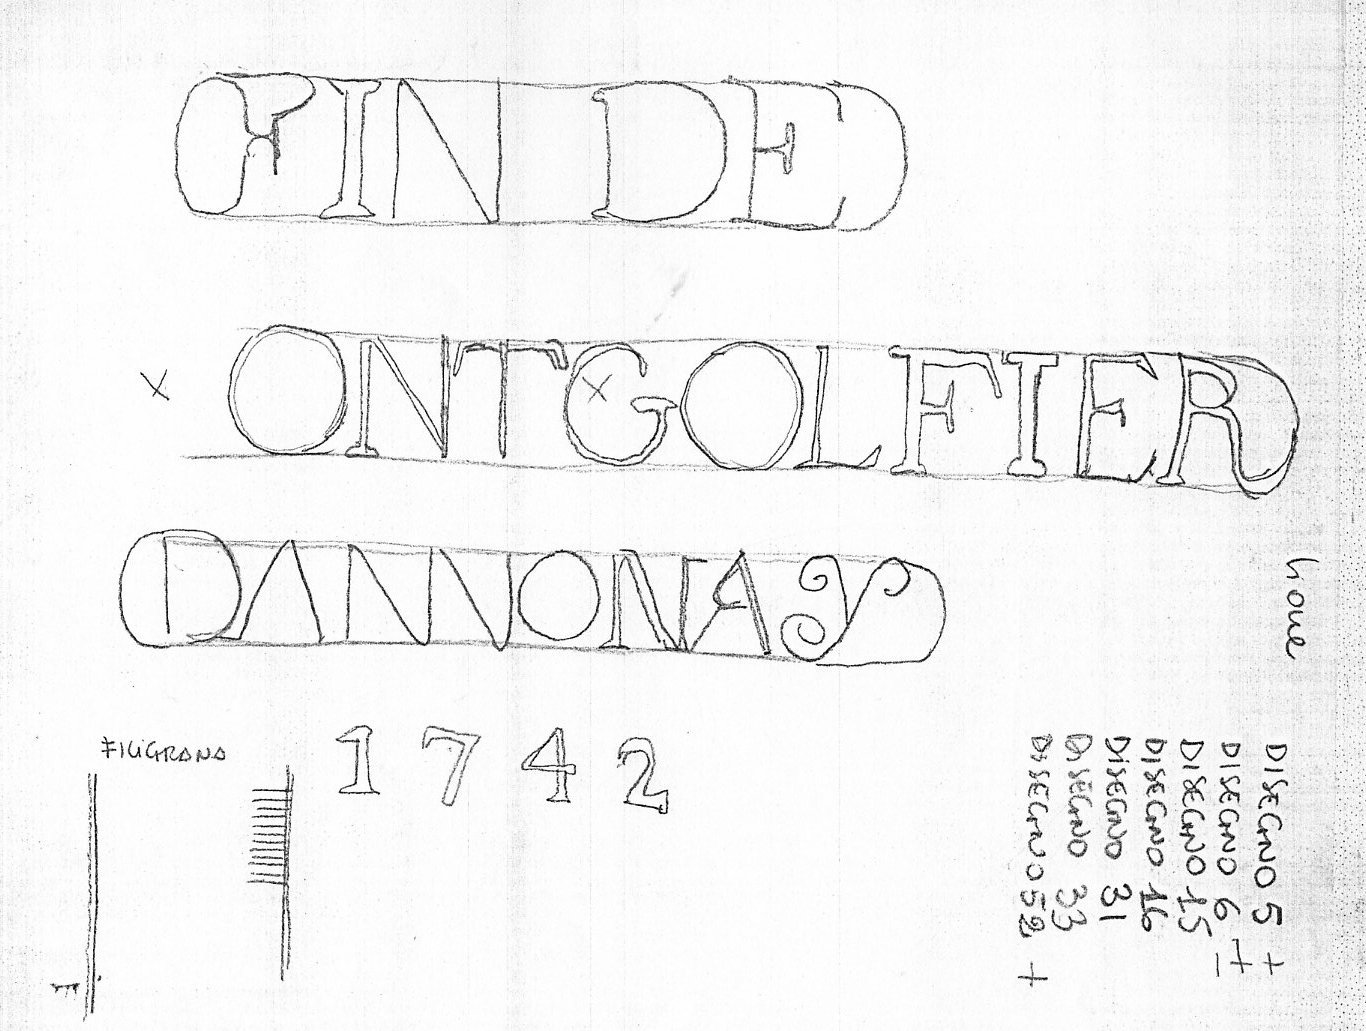 FIN DE
ONTGOLFIER
DANNONAY
FILIGRANA
1742
lione
DISEGNO 5 +
DISEGNO 6 +-
DISEGNO 15
DISEGNO 16
DISEGNO 31
DISEGNO 33
DISEGNO 52 +